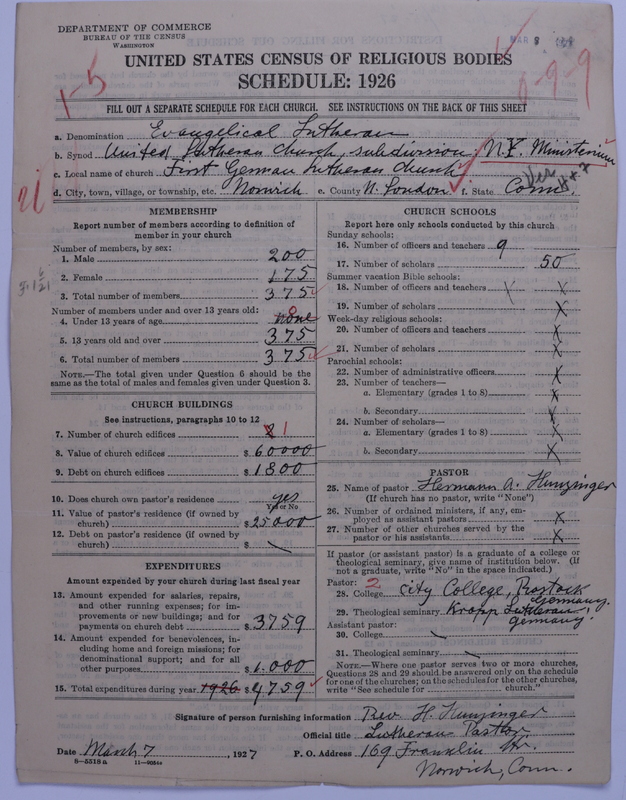 DEPARTMENT OF COMMERCE
BUREAU OF THE CENSUS
WASHINGTON
MAR 8
UNITED STATES CENSUS OF RELIGIOUS BODIES
SCHEDULE: 1926
1-5
9-9
FILL OUT A SEPARATE SCHEDULE FOR EACH CHURCH. SEE INSTRUCTIONS ON THE BACK OF THIS SHEET
a. Denomination Evangelical Lutheran
b. Synod United Lutheran Church, subdivision: N.Y. Ministerium
c. Local name of church First German Lutheran Church
d. City, town, village, or township, etc. Norwich e. County N. London f. State Conn
21
MEMBERSHIP
Report number of members according to definition of member in your church
Number of members, by sex:
1. Male 200
2. Female 175
3. Total number of members 375
Number of members under and over 13 years old:
4. Under 13 years of age none 0
5. 13 years old and over 375
6. Total number of members 375
NOTE.—The total given under Question 6 should be the
same as the total of males and females given under Question 3.
CHURCH BUILDINGS
See instructions, paragraphs 10 to 12
7. Number of church edifices 1
8. Value of church edifices $ 60000
9. Debt on church edifices $ 1800
10. Does church own pastor's residence yes
Yes or No
11. Value of pastor's residence (if owned by
church) $ 25000
12. Debt on pastor's residence (if owned by
church) $
EXPENDITURES
Amount expended by your church during last fiscal year
13. Amount expended for salaries, repairs,
and other running expenses; for im-
provements or new buildings; and for
payments on church debt $ 3759
14. Amount expended for benevolences, in-
cluding home and foreign missions; for
denominational support; and for all
other purposes $ 1.000
15. Total expenditures during year 1926 $ 4759
CHURCH SCHOOLS
Report here only schools conducted by this church
Sunday schools:
16. Number of officers and teachers 9
17. Number of scholars 50
Summer vacation Bible schools:
18. Number of officers and teachers X X
19. Number of scholars X
Week-day religious schools:
20. Number of officers and teachers X
21. Number of scholars X
Parochial schools:
22. Number of administrative officers X
23. Number of teachers—
a. Elementary (grades 1 to 8) X
b. Secondary X
24. Number of scholars—
a. Elementary (grades 1 to 8) X
b. Secondary X
PASTOR
25. Name of pastor Hermann A. Hunzinger
(If church has no pastor, write "None")
26. Number of ordained ministers, if any, em-
ployed as assistant pastors X
27. Number of other churches served by the
pastor or his assistants X
If pastor (or assistant pastor) is a graduate of a college or
theological seminary, give name of institution below. (If
not a graduate, write "No" in the space indicated.)
Pastor: 2
28. College City College, Rostock Germany.
29. Theological seminary Kropp Lutheran, Germany.
Assistant pastor:
30. College
31. Theological seminary
NOTE.—Where one pastor serves two or more churches,
Questions 28 and 29 should be answered only on the schedule
for one of the churches; on the schedules for the other churches,
write "See schedule for church."
Signature of person furnishing information Rev H. Hunzinger
Official title Lutheran Pastor
Date March 7, 1927 P. O. Address 169 Franklin Str.
8-5518a
Norwich, Conn.